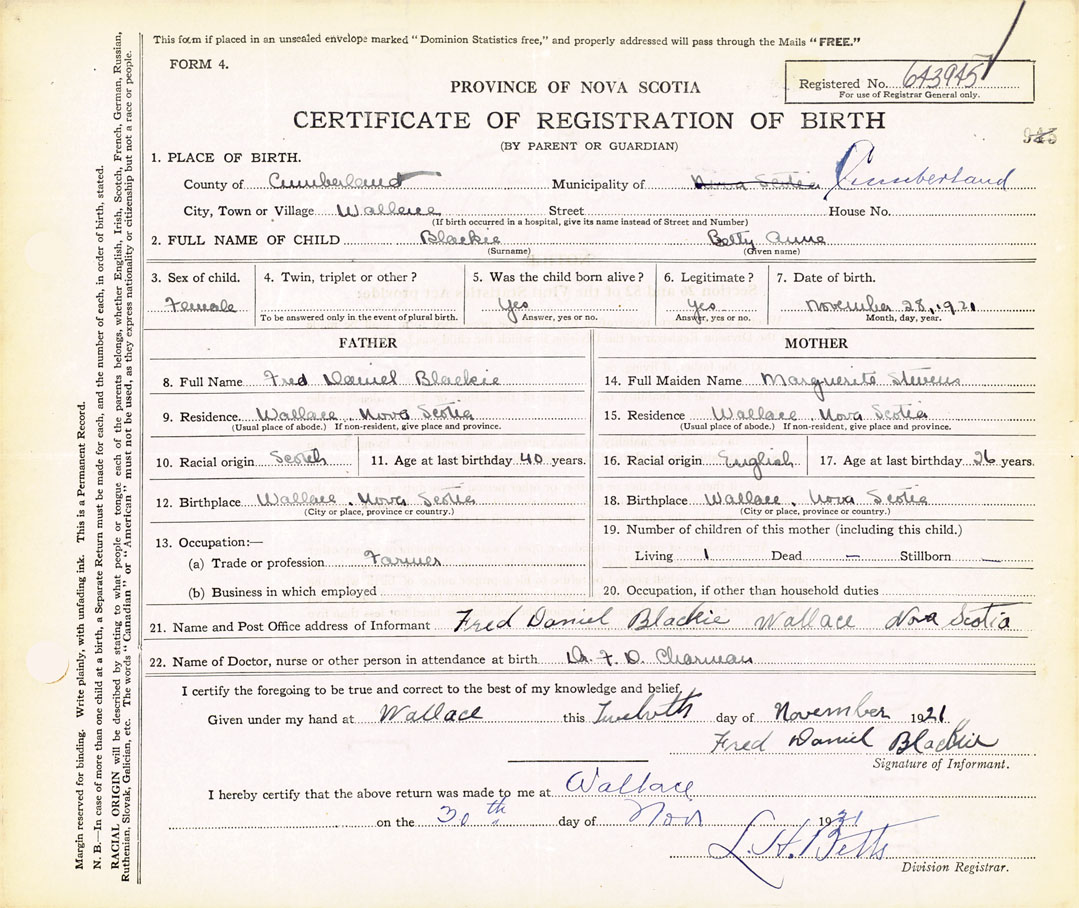 This form if placed in an unsealed envelope marked "Dominion Statistics free," and properly addressed will pass through the Mails "FREE."
FORM 4.
Registered No. 643945
For use of Registrar General only.
PROVINCE OF NOVA SCOTIA
CERTIFICATE OF REGISTRATION OF BIRTH
(BY PARENT OR GUARDIAN)
945
1. PLACE OF BIRTH.
County of Cumberland Municipality of Nova Scotia Cumberland
City, Town or Village Wallace Street House No.
(If birth occurred in a hospital, give its name instead of Street and Number)
2. FULL NAME OF CHILD Blackie Betty Anne
(Surname) (Given name)
3. Sex of child. 4. Twin, triplet or other? 5. Was the child born alive? 6. Legitimate? 7. Date of birth.
Female Yes Yes November 28, 1921
To be answered only in the event of plural birth. Answer, yes or no. Answer, yes or no. Month, day, year.
FATHER MOTHER
8. Full Name Fred Daniel Blackie 14. Full Maiden Name Marguerite Stevens
9. Residence. Wallace, Nova Scotia 15. Residence Wallace Nova Scotia
(Usual place of abode.) If non-resident, give place and province. (Usual place of abode.) If non-resident, give place and province.
10. Racial origin Scotch 11. Age at last birthday 40 years. 16. Racial origin English 17. Age at last birthday 26 years.
12. Birthplace Wallace, Nova Scotia 18. Birthplace Wallace, Nova Scotia
(City or place, province or country.) (City or place, province or country.)
13. Occupation:— 19. Number of children of this mother (including this child.)
(a) Trade or profession Farmer Living 1 Dead — Stillborn —
(b) Business in which employed 20. Occupation, if other than household duties
21. Name and Post Office address of Informant Fred Daniel Blackie Wallace Nova Scotia
22. Name of Doctor, nurse or other person in attendance at birth Dr. F. D. Charman
I certify the foregoing to be true and correct to the best of my knowledge and belief.
Given under my hand at Wallace this Twelvth day of November 1921
Fred Daniel Blackie
Signature of Informant.
I hereby certify that the above return was made to me at Wallace
on the 30th day of Nov 1921
L. H. Betts
Division Registrar.
Margin reserved for binding. Write plainly, with unfading ink. This is a Permanent Record.
N. B.—In case of more than one child at a birth, a Separate Return must be made for each, and the number of each, in order of birth, stated.
RACIAL ORIGIN will be described by stating to what people or tongue each of the parents belongs, whether English, Irish, Scotch, French, German, Russian,
Ruthenian, Slovak, Galician, etc. The words "Canadian" or "American" must not be used, as they express nationality or citizenship but not a race or people.